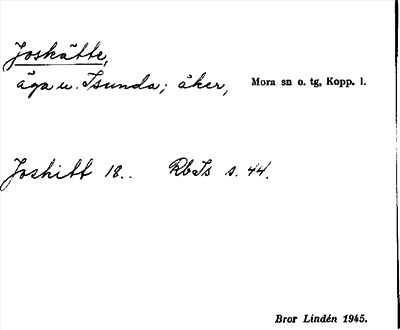 Joskätte,
äga u. Isunda; åker, Mora sn o. tg, Kopp. l.
Joshitt 18.. RbIs s. 44.
Bror Lindén 1945.